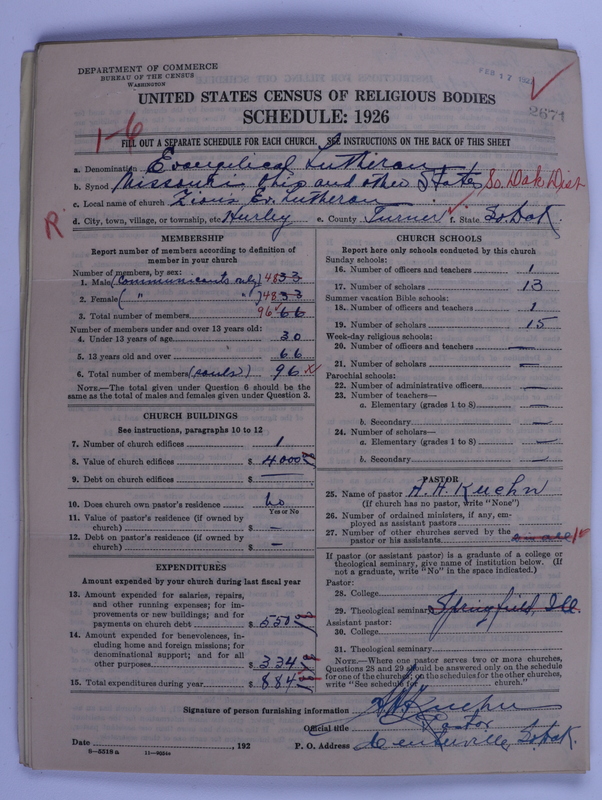 DEPARTMENT OF COMMERCE
BUREAU OF THE CENSUS
WASHINGTON
FEB 17 192
UNITED STATES CENSUS OF RELIGIOUS BODIES
SCHEDULE: 1926
2671
1-6
FILL OUT A SEPARATE SCHEDULE FOR EACH CHURCH. SEE INSTRUCTIONS ON THE BACK OF THIS SHEET
a. Denomination Evangelical Lutheran
b. Synod Missouri, Ohio and other States So. Dak Dist
c. Local name of church Zions Ev. Lutheran
R
d. City, town, village, or township, etc Hurley e. County Turner f. State So. Dak.
MEMBERSHIP
Report number of members according to definition of
member in your church
Number of members, by sex:
1. Male (Communicants only) 48 33
2. Female ( " " ) 48 33
3. Total number of members 96 66
Number of members under and over 13 years old:
4. Under 13 years of age 30
5. 13 years old and over 66
6. Total number of members (souls) 96
NOTE.—The total given under Question 6 should be the
same as the total of males and females given under Question 3.
CHURCH BUILDINGS
See instructions, paragraphs 10 to 12
7. Number of church edifices 1
8. Value of church edifices $ 4000
9. Debt on church edifices $ —
10. Does church own pastor's residence No
Yes or No
11. Value of pastor's residence (if owned by
church) $ —
12. Debt on pastor's residence (if owned by
church) $ —
EXPENDITURES
Amount expended by your church during last fiscal year
13. Amount expended for salaries, repairs,
and other running expenses; for im-
provements or new buildings; and for
payments on church debt $ 550
14. Amount expended for benevolences, in-
cluding home and foreign missions; for
denominational support; and for all
other purposes $ 334
15. Total expenditures during year $ 884
CHURCH SCHOOLS
Report here only schools conducted by this church
Sunday schools:
16. Number of officers and teachers 1
17. Number of scholars 13
Summer vacation Bible schools:
18. Number of officers and teachers 1
19. Number of scholars 15
Week-day religious schools:
20. Number of officers and teachers —
21. Number of scholars —
Parochial schools:
22. Number of administrative officers —
23. Number of teachers—
a. Elementary (grades 1 to 8) —
b. Secondary —
24. Number of scholars—
a. Elementary (grades 1 to 8) —
b. Secondary —
PASTOR
25. Name of pastor A. H. Kuehn
(If church has no pastor, write "None")
26. Number of ordained ministers, if any, em-
ployed as assistant pastors
27. Number of other churches served by the
pastor or his assistants
If pastor (or assistant pastor) is a graduate of a college or
theological seminary, give name of institution below. (If
not a graduate, write "No" in the space indicated.)
Pastor:
28. College
29. Theological seminary Springfield, Ill.
Assistant pastor:
30. College
31. Theological seminary
NOTE.—Where one pastor serves two or more churches,
Questions 28 and 29 should be answered only on the schedule
for one of the churches; on the schedules for the other churches,
write "See schedule for church."
Signature of person furnishing information A. H. Kuehn
Official title Pastor
Date , 192 P. O. Address Centerville, So. Dak.
8-5518 a 11-9054a